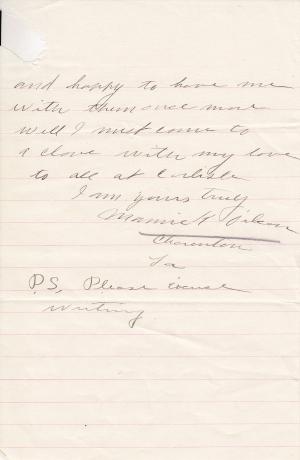 and happy to have me
with them once more
Well I must come to
a close with my love
to all at Carlisle
I am yours truly
Mamie H Vilcan
Charenton
La
P.S. Please excuse
writing